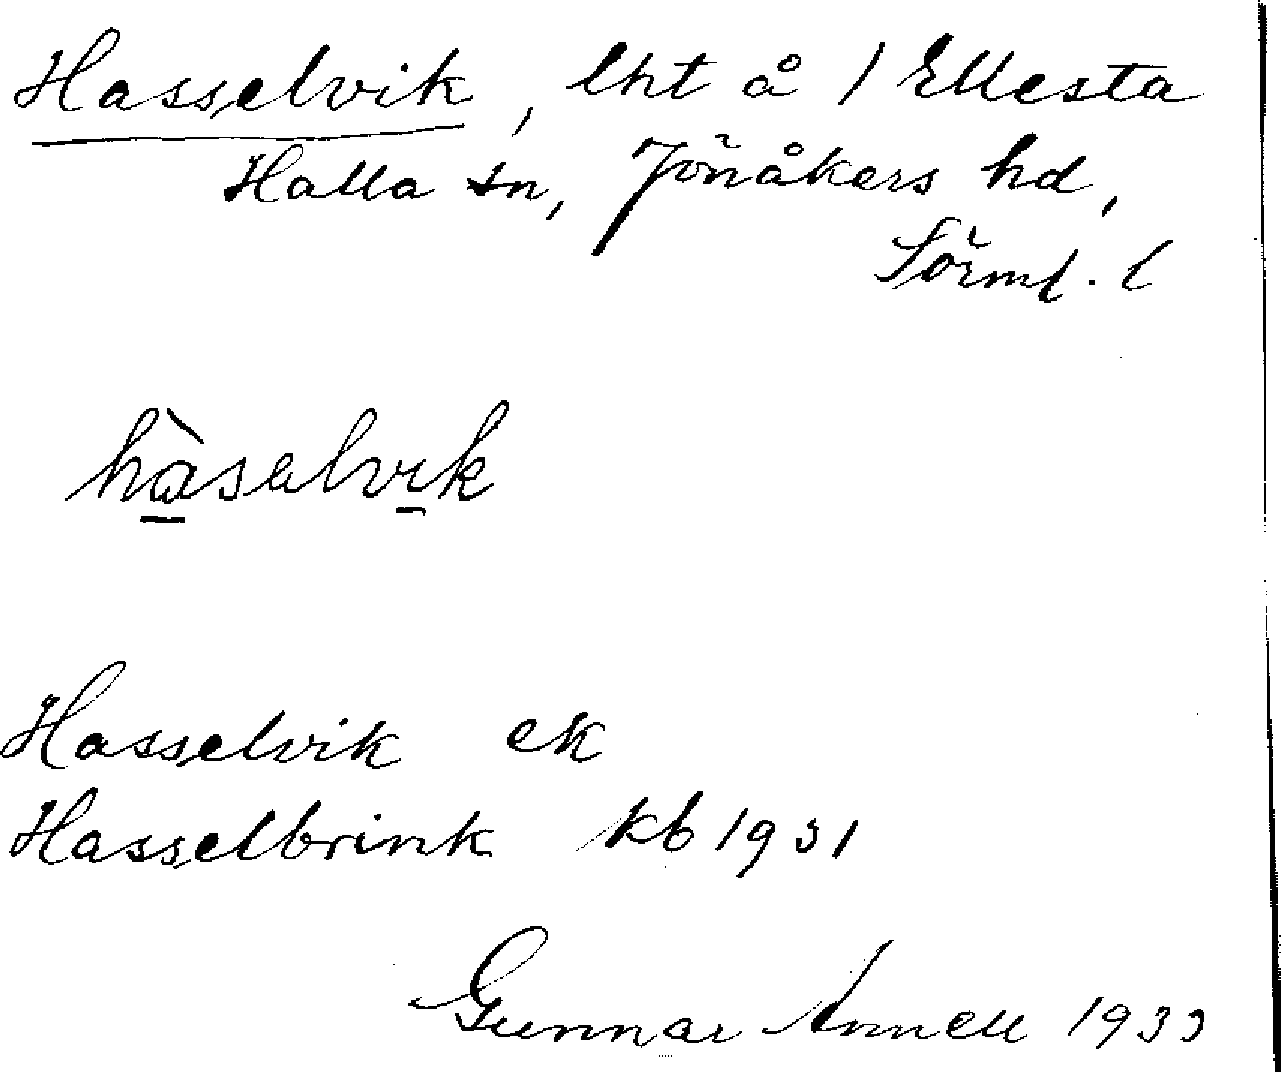 Hasselvik, lht å / Ellesta
Halla sn, Jönåkers hd,
Sörml. l
hàsəlvik
Hasselvik ek
Hasselbrink kb 1931
Gunnar Annell 1933